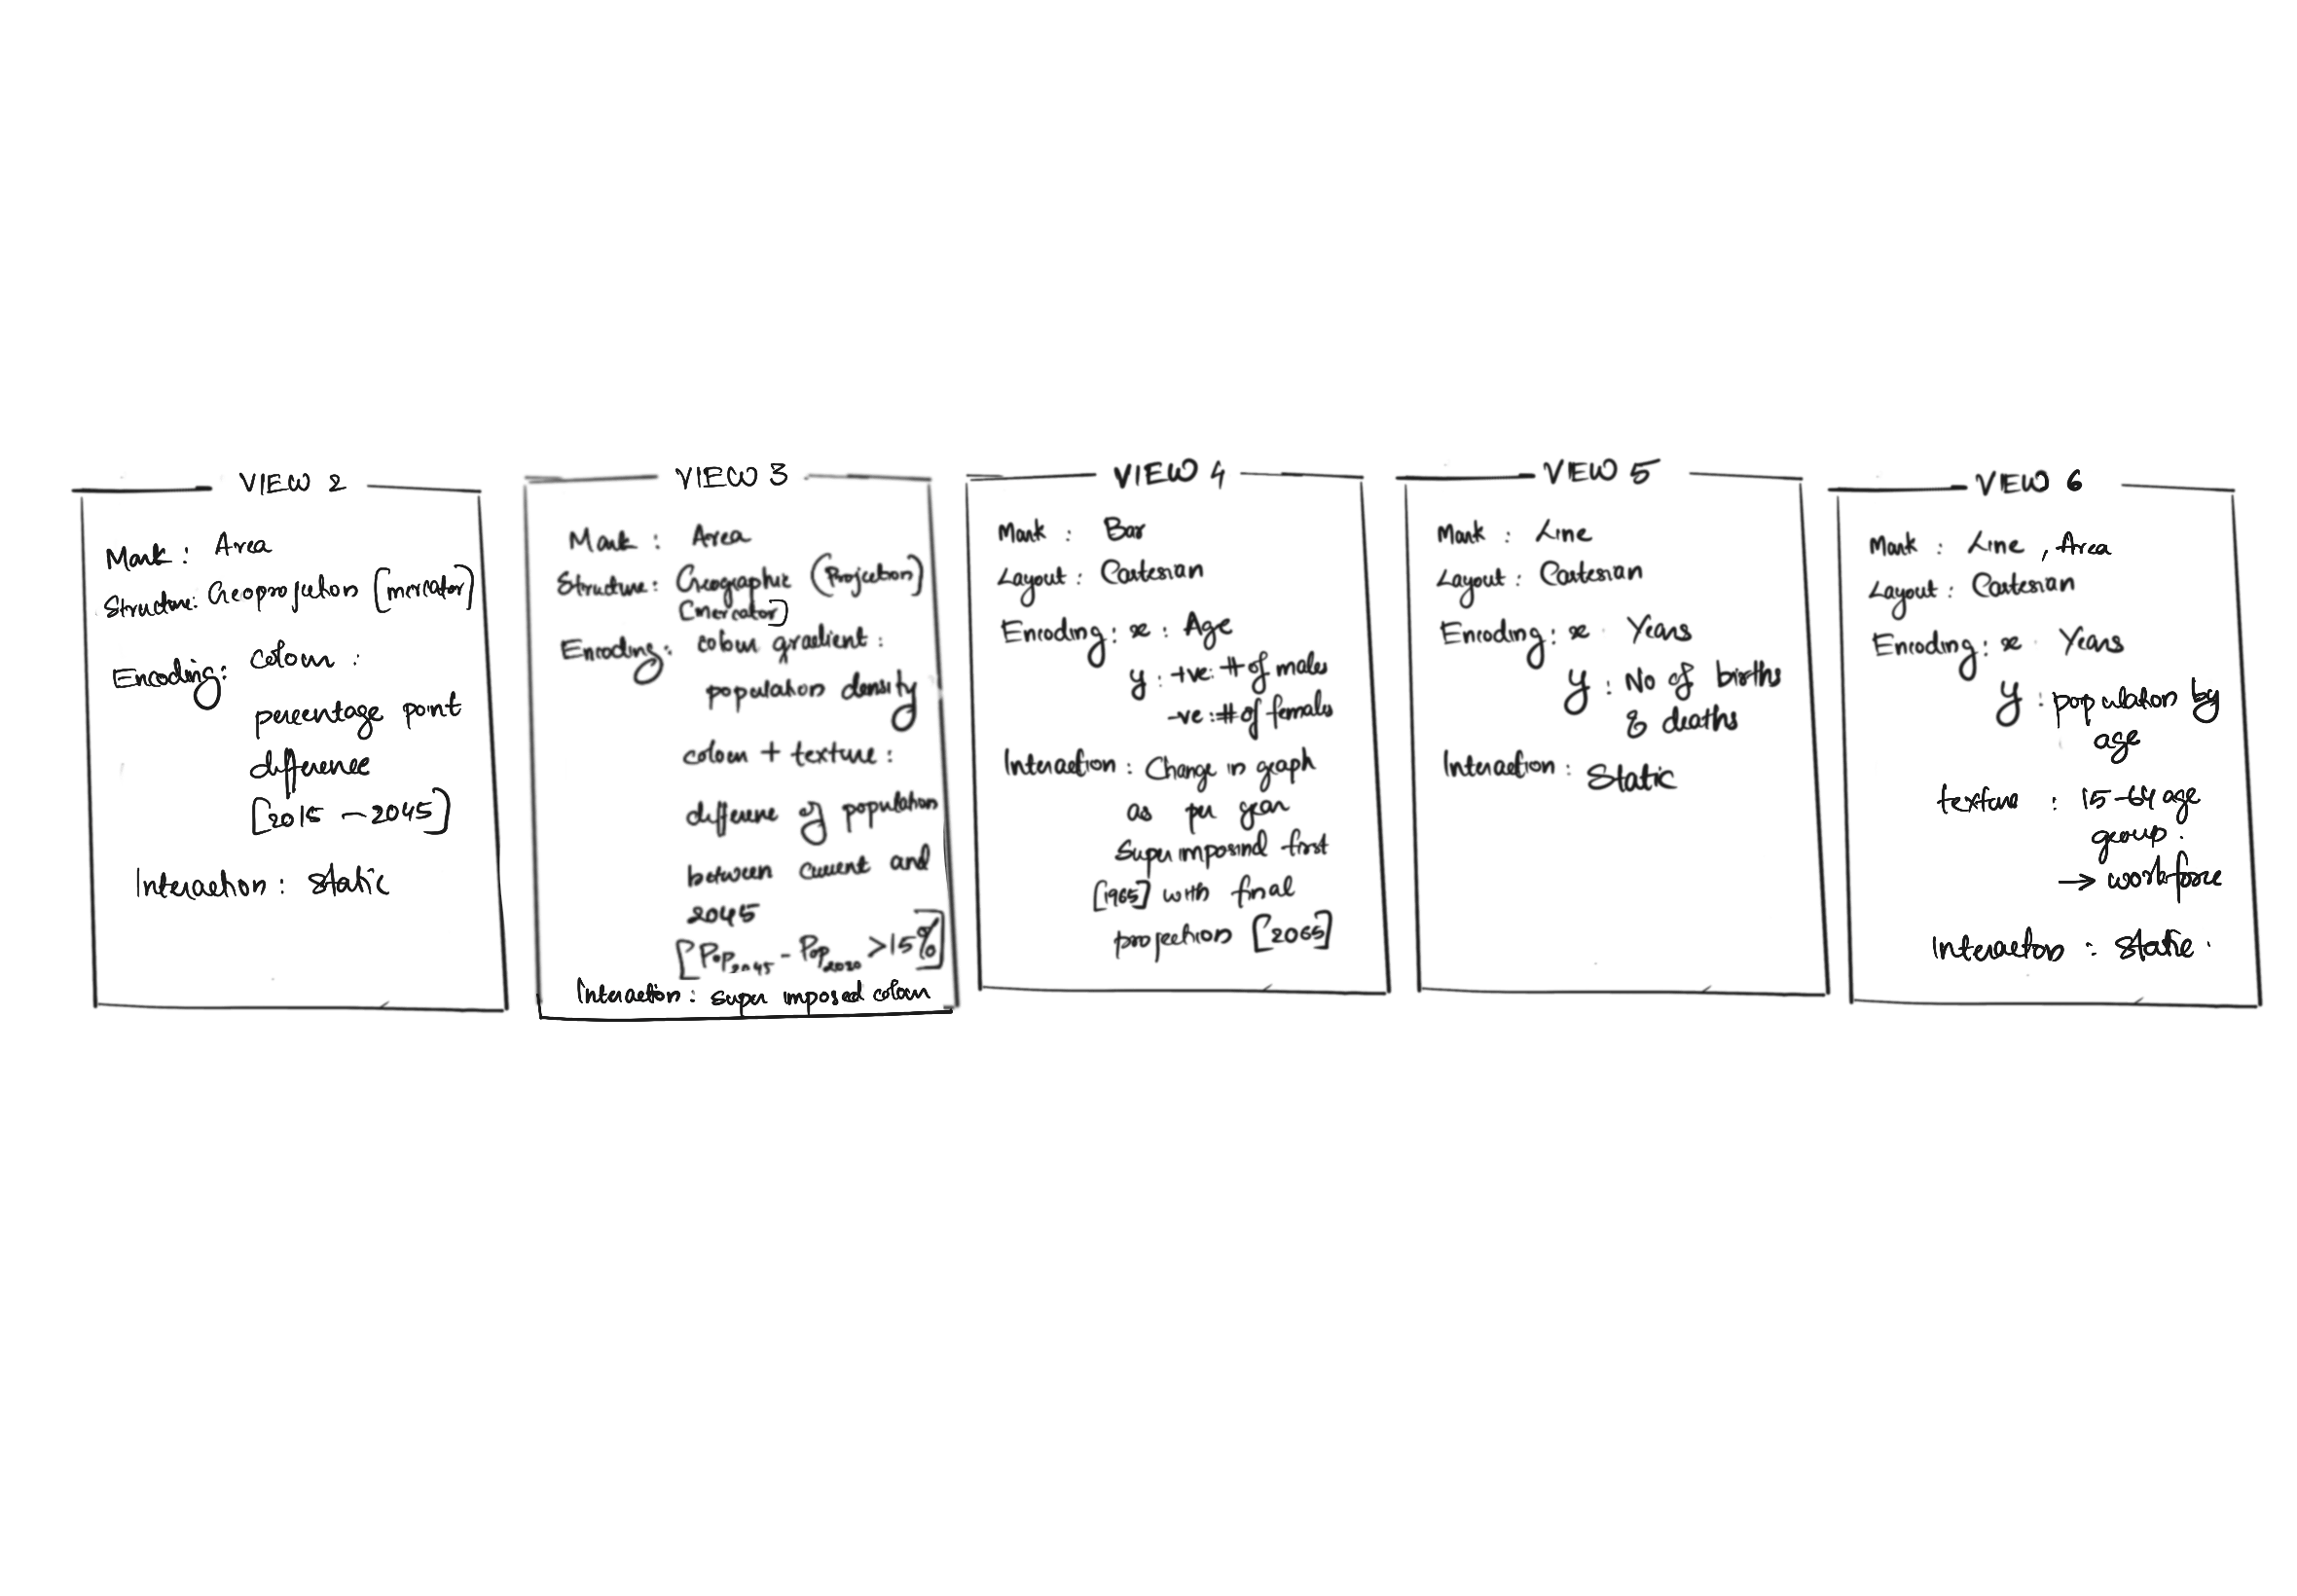 VIEW 2
Mark : Area
Structure: Geoprojection [mercator]
Encoding: colour :
percentage point
difference
[2015 - 2045]
Interaction : static
VIEW 3
Mark : Area
Structure : Geographic (Projection)
[mercator]
Encoding: colour gradient :
population density
colour + texture :
difference of population
between current and
2045
[Pop2045 - Pop2020 >15%]
Interaction : super imposed colour
VIEW 4
Mark : Bar
Layout : Cartesian
Encoding : x : Age
y : +ve: # of males
-ve : # of females
Interaction : Change in graph
as per year
Superimposind first
[1965] with final
projection [2065]
VIEW 5
Mark : Line
Layout : Cartesian
Encoding : x Years
y : No of births
& deaths
Interaction : Static
VIEW 6
Mark : Line , Area
Layout : Cartesian
Encoding : x Years
y : population by
age
texture : 15-64 age
group.
→ workforce
Interaction : static.